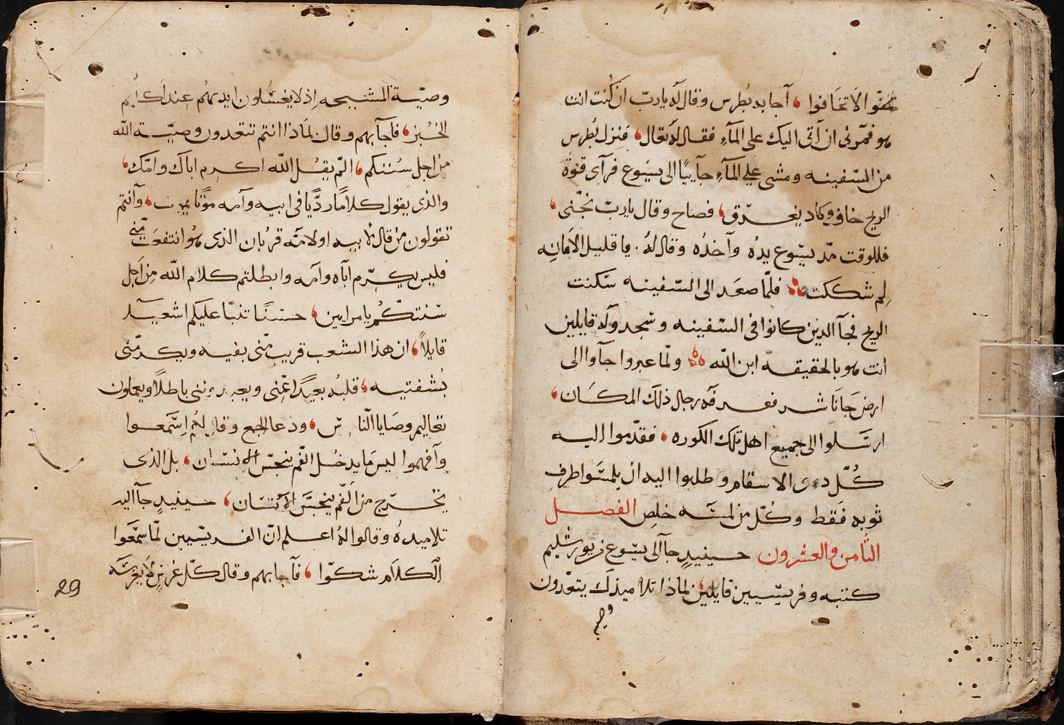 هو لا تخافوا، أجابه بطرس وقال له يا رب ان كنت انت
هو فمرني ان آتي اليك على المآء فقال له تعال، فنزل بطرس
من السفينه ومشى على المآء جآييًا الى يسوع فرآى قوة
الريح خاف وكاد يغرق، فصاح وقال يا رب نجني،
فللوقت مد يسوع يده وآخذه وقال له. يا قليل الامانه
لم شككت فلما صعد الى السفينه سكنت
الريح فجآ الدين كانوا في السفينه وسجدو له قايلين
انت هو بالحقيقه ابن الله ولما عبروا جآوا الى
ارض جاناشر فعرفه رجال ذلك المكان،
ارسلو الى جميع اهل تلك الكوره، فقدموا اليه
كل ذوي الاسقام وطلبوا اليه ان يلمسوا طرف
ثوبه فقط وكل من لمسه خلص الفصل
الثامن والعشرون حينيدٍ جآ الى يسوع من يورشليم
كتبه وفريسيين قايلين لماذا تلاميذك يتعدون
وصية
وصية المشيخه اذ لا يغسلون ايديهم عند اكلهم
الخبز، فآجابهم وقال لماذا انتم تتعدون وصية الله
من اجل سنتكم، الم يقل الله اكرم اباك وامك،
والذي يقول كلامًا رديًا في ابيه وآمه موتًا يموت، وآنتم
تقولون من قال لابيه او لامه قربان الذي هو انتفعت مني
فليس يكرم آباه وآمه وابطلتم كلام الله من اجل
سنتكم يا مرايين، حسنًا تنبا عليكم اشعيا
قايلاً، ان هذا الشعب قريب مني بفيه ويكرمني
بشفتيه، قلبه بعيدًا عني ويعبدونني باطلاً ويعملون
تعاليم وصايا الناس، ودعا الجمع وقال لهم اسمعوا
وآفهموا ليس ما يدخل الفم ينجس الانسان، بل الذي
يخرج من الفم ينجس الانسان، حينيدٍ جآ اليه
تلاميده وقالوا له اعلم ان الفريسيين لما سمعوا
الكلام شكوا، فآجابهم وقال كل غرسٍ لم يغرسه
29